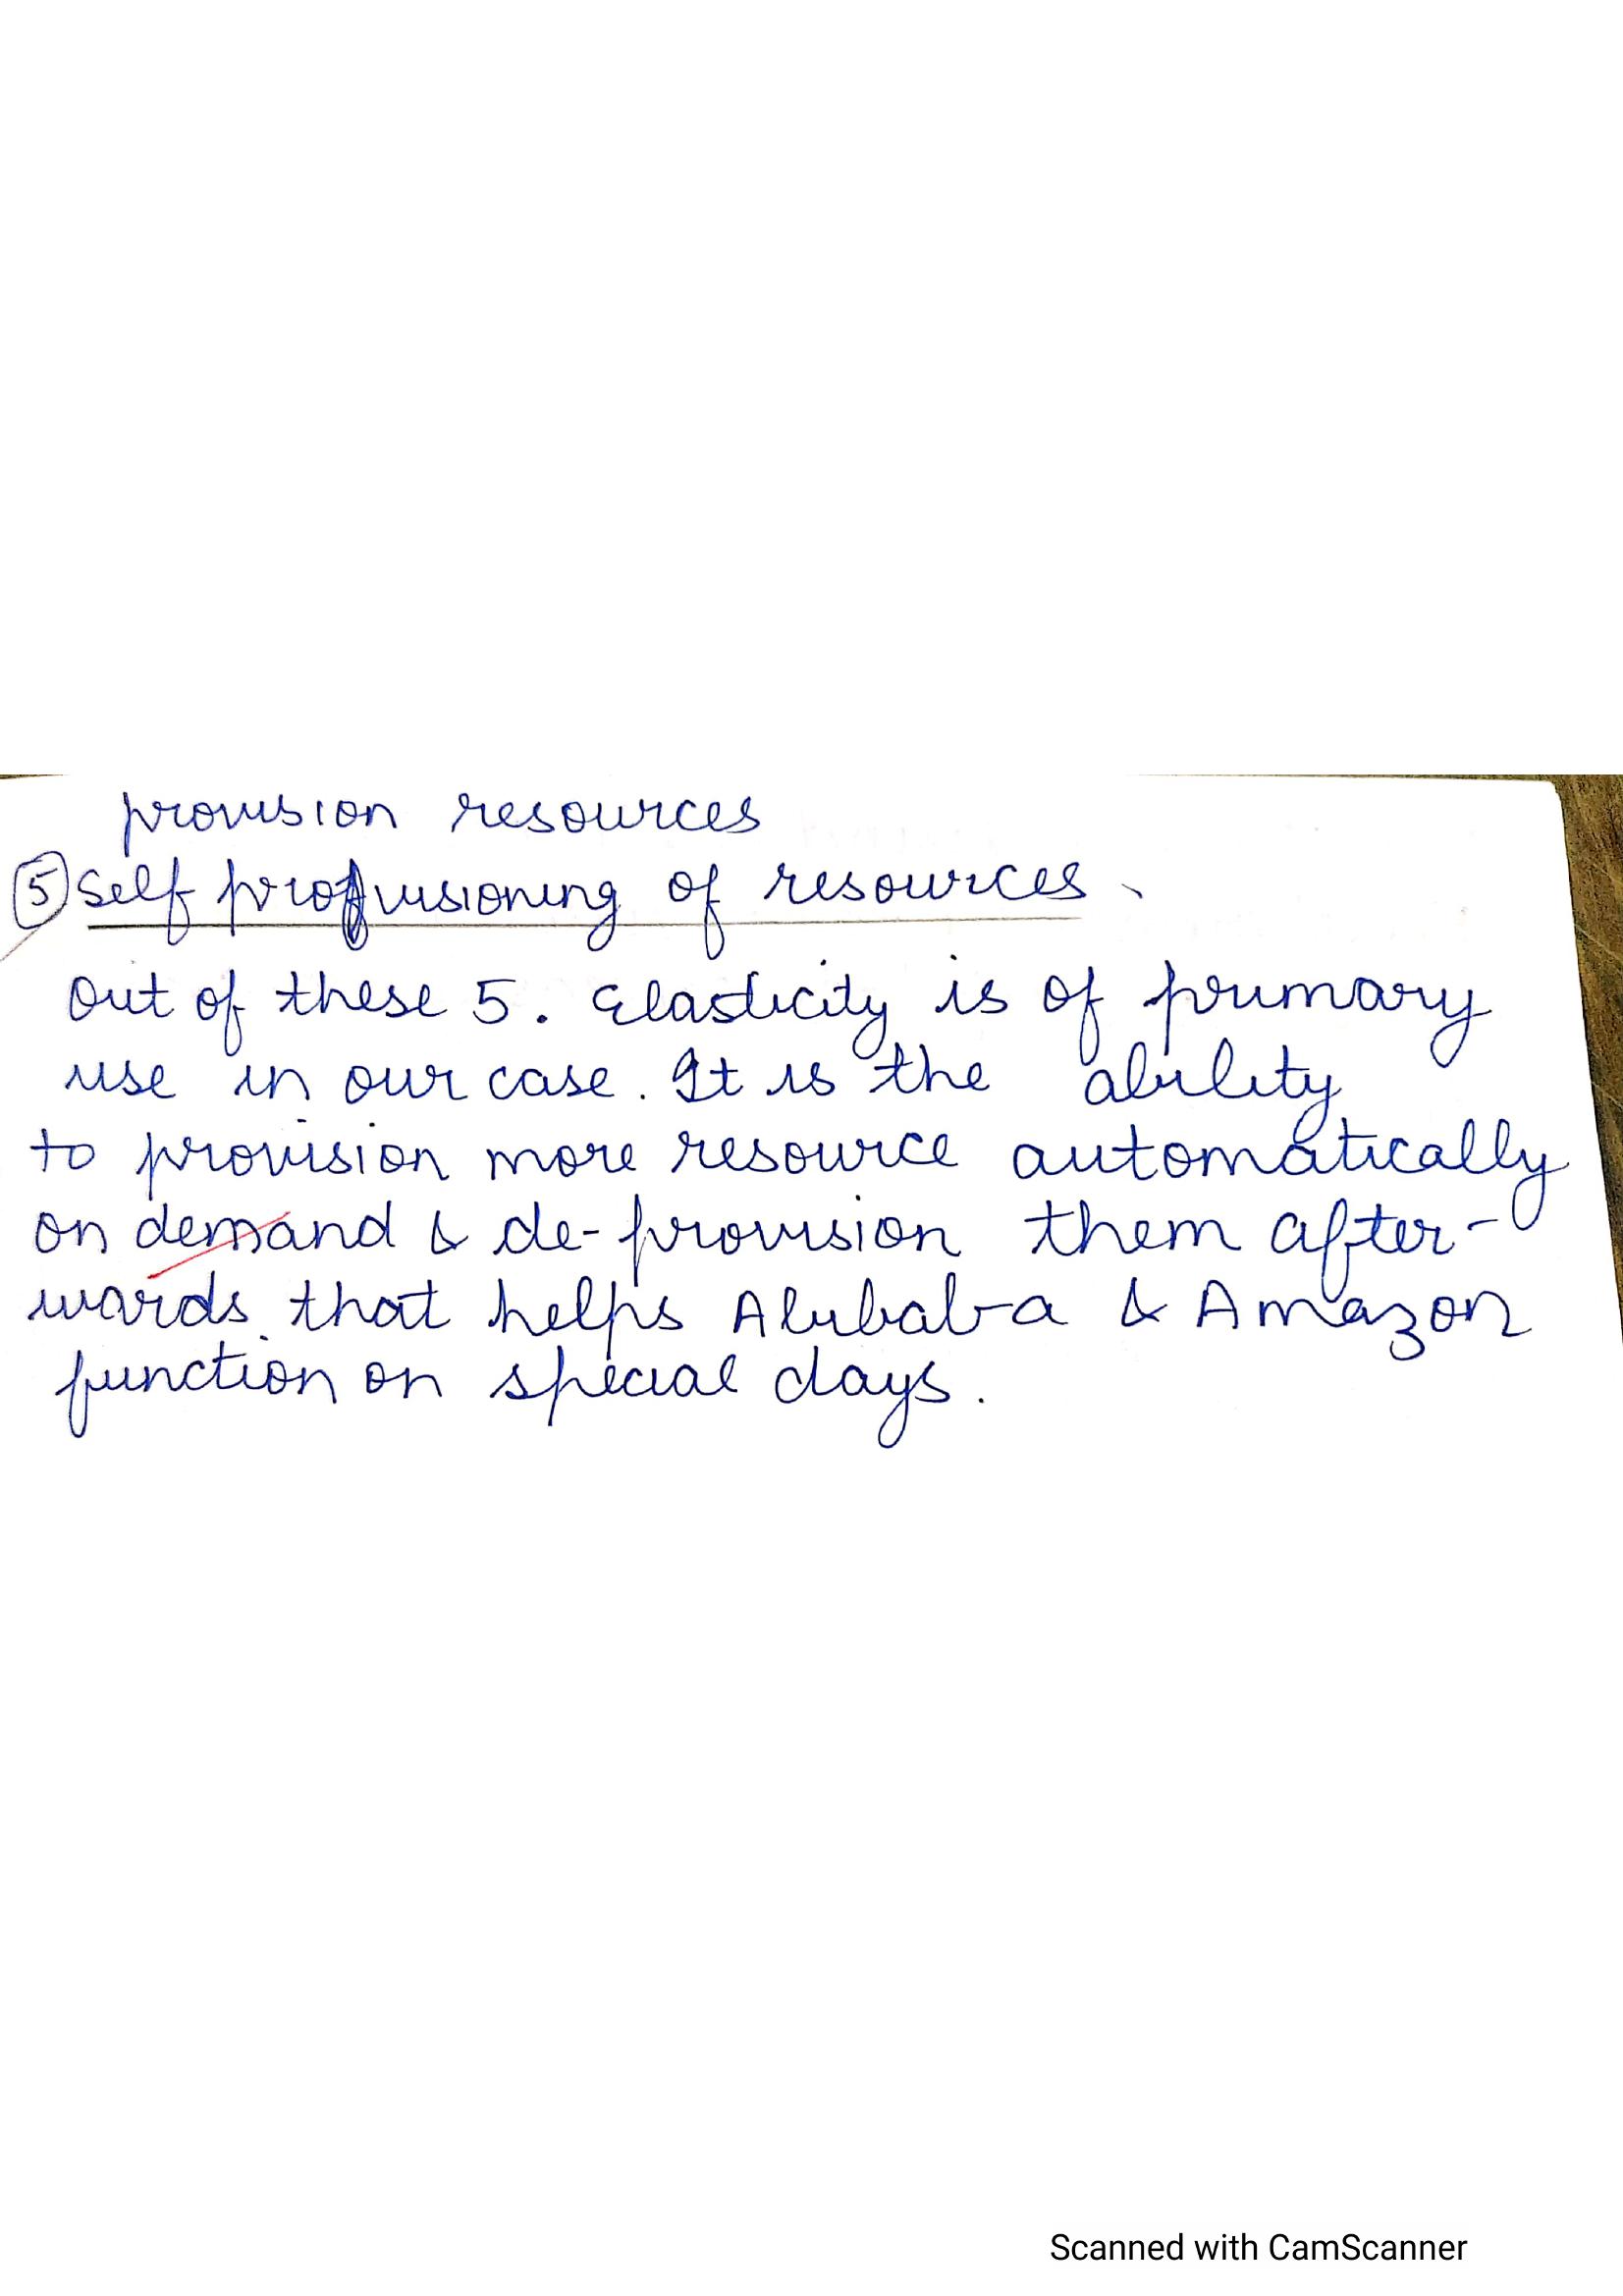 provision resources
⑤ Self provisioning of resources.
Out of these 5. Elasticity is of primary
use in our case. It is the ability
to provision more resource automatically
on demand & de-provision them after-
wards that helps Alibaba & Amazon
function on special days.
Scanned with CamScanner